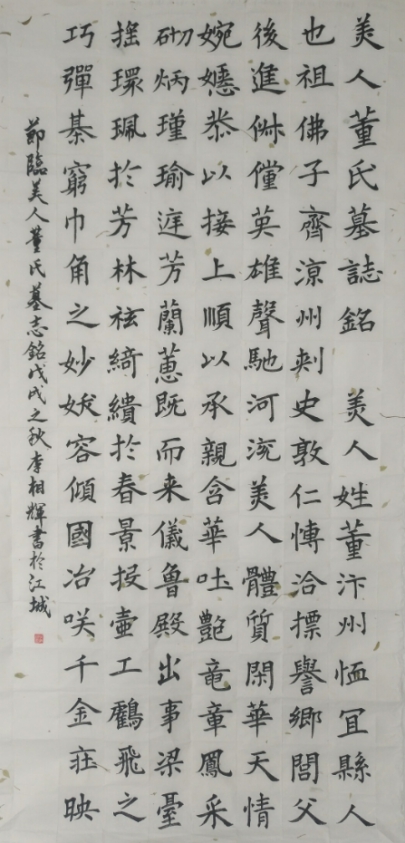 美人董氏墓誌銘 美人姓董汴州恤宜縣人
也祖佛子齊涼州刾史敦仁愽洽摽譽鄉閭父
後進俶儻英雄聲馳河流美人體質閑華天情
婉嫕恭以接上順以承親含華吐艷竜章鳳采
砌炳瑾瑜庭芳蘭蕙既而来儀魯殿出事梁臺
搖環珮於芳林袨綺繢於春景投壷工鸖飛之
巧彈棊窮巾角之妙妖容傾國冶咲千金莊映
節臨美人董氏墓志銘戊戌之秋李相輝書於江城